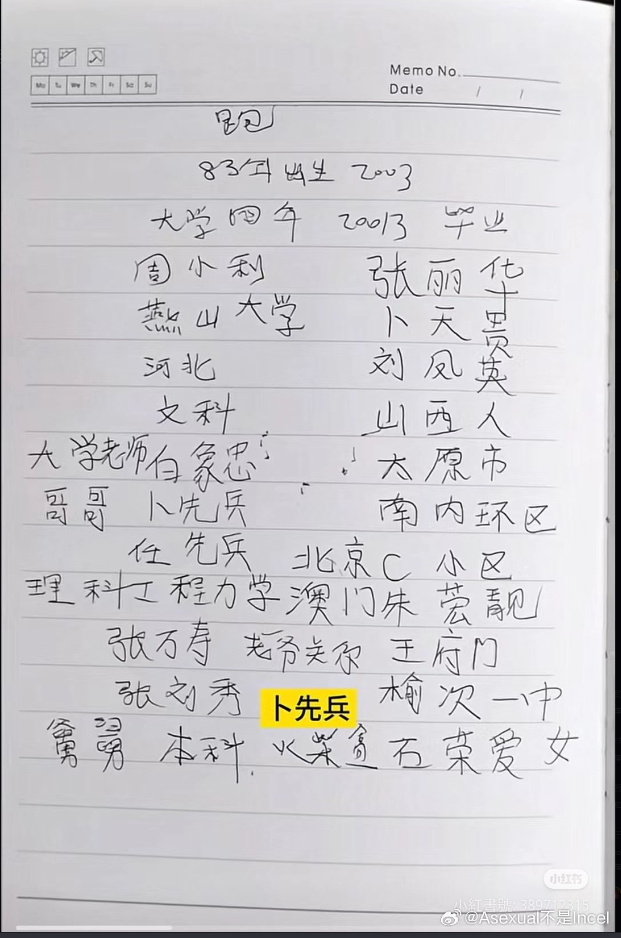 Mo Tu We Th Fr Sa Su
Memo No.
Date / /
跑
83年出生 2003
大学四年 20013 毕业
周小利 张丽华
燕山大学 卜天贵
河北 刘凤英
文科 山西人
大学老师白象忠 太原市
哥哥 卜先兵 南内环区
任先兵 北京C小区
理科工程力学澳门朱芸靓
张万寿 老爷关系 王府门
张刘秀 卜先兵 榆次一中
舅舅 本科. 火柴盒 石荣爱 女
小红书
@Asexual不是Incel